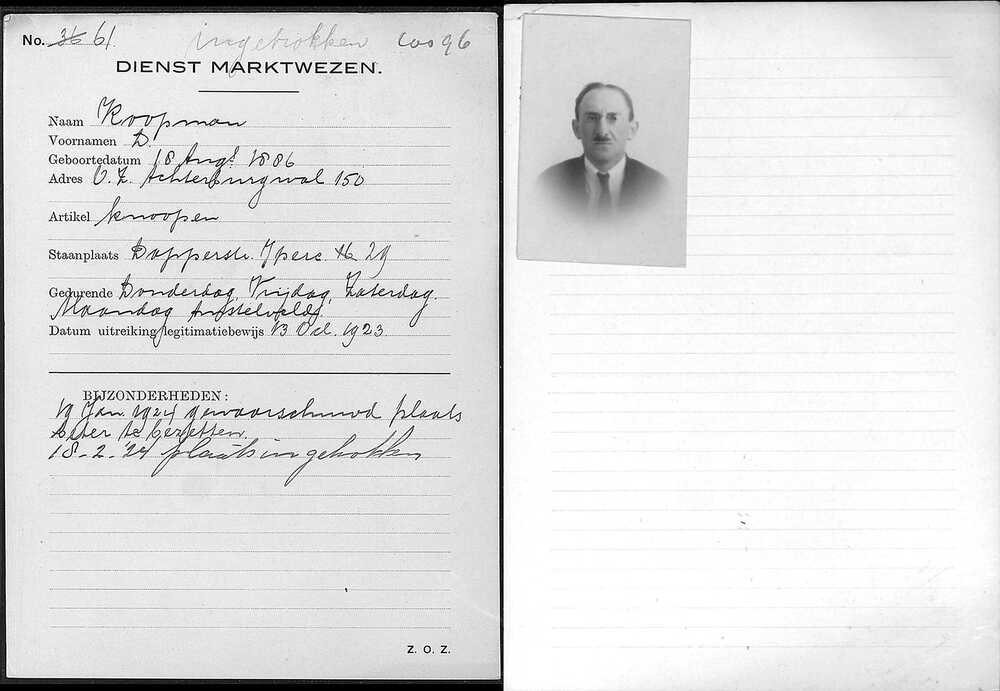 No. 36 61. ingetrokken
DIENST MARKTWEZEN.
Naam Koopman
Voornamen D.
Geboortedatum 18 Augs. 1886
Adres O.Z. Achterburgwal 150
Artikel knoopen
Staanplaats Dapperstr. 7 perc. 16 29
Gedurende Donderdag, Vrijdag, Zaterdag.
Maandag Amstelveld.
Datum uitreiking legitimatiebewijs 13 Oct. 1923
BIJZONDERHEDEN:
19 Jan. 1924 gewaarschuwd plaats
beter te bezetten.
18-2-'24 plaats ingetrokken
Z. O. Z.